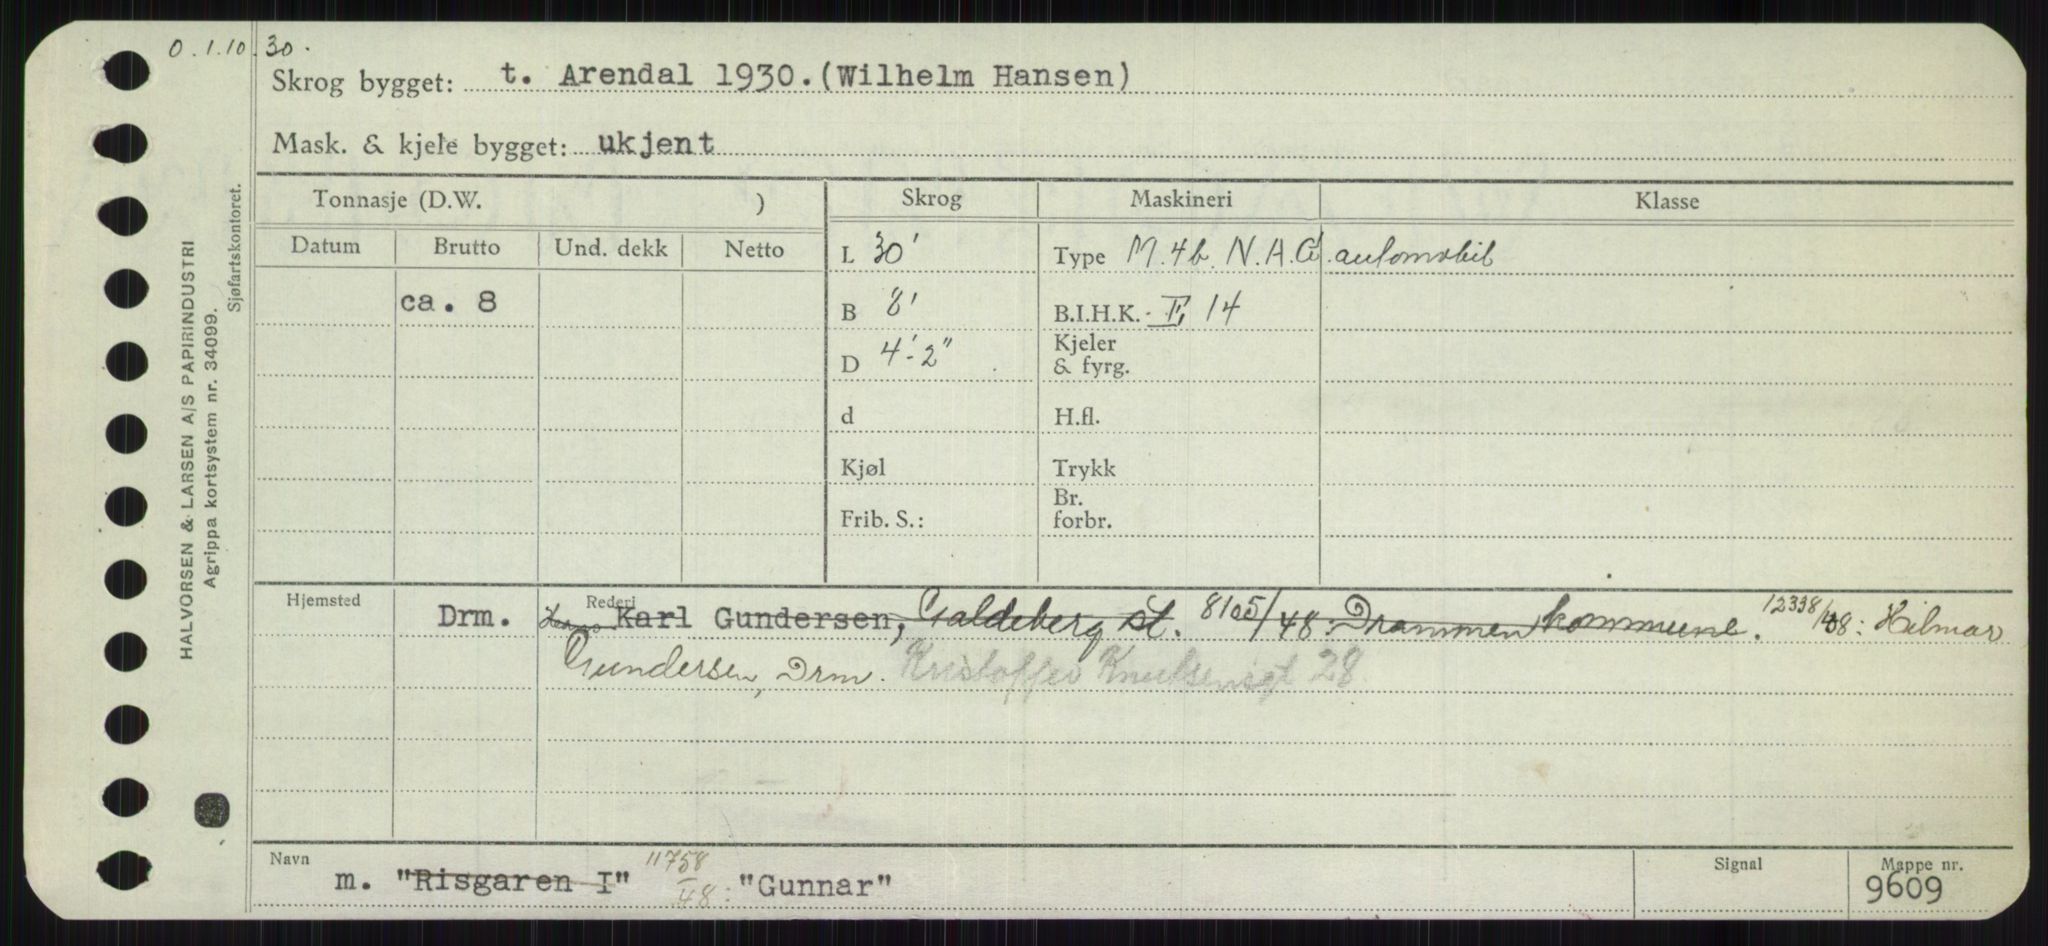 O.1.10.30.
Skrog bygget: t. Arendal 1930.(Wilhelm Hansen)
Mask. & kjele bygget: ukjent
Tonnasje (D.W. )
Skrog
Maskineri
Klasse
Datum
Brutto
Und. dekk
Netto
L 30'
Type M. 4b. N.A.G. automobil
ca. 8
B 8'
B.I.H.K. I, 14
D 4'-2"
Kjeler
& fyrg.
d
H.fl.
Kjøl
Trykk
Frib. S.:
Br.
forbr.
Hjemsted
Rederi
Drm. Karl Gundersen, Galdeberg st. 8105/48: Drammen kommune. 12338/48: Hilmar
Gundersen, Drm. Kristoffer Knutsensgt 28
Navn
m. "Risgaren I" 11758/48: "Gunnar"
Signal
Mappe nr.
9609
HALVORSEN & LARSEN A/S PAPIRINDUSTRI
Agrippa kortsystem nr. 34099.
Sjøfartskontoret.